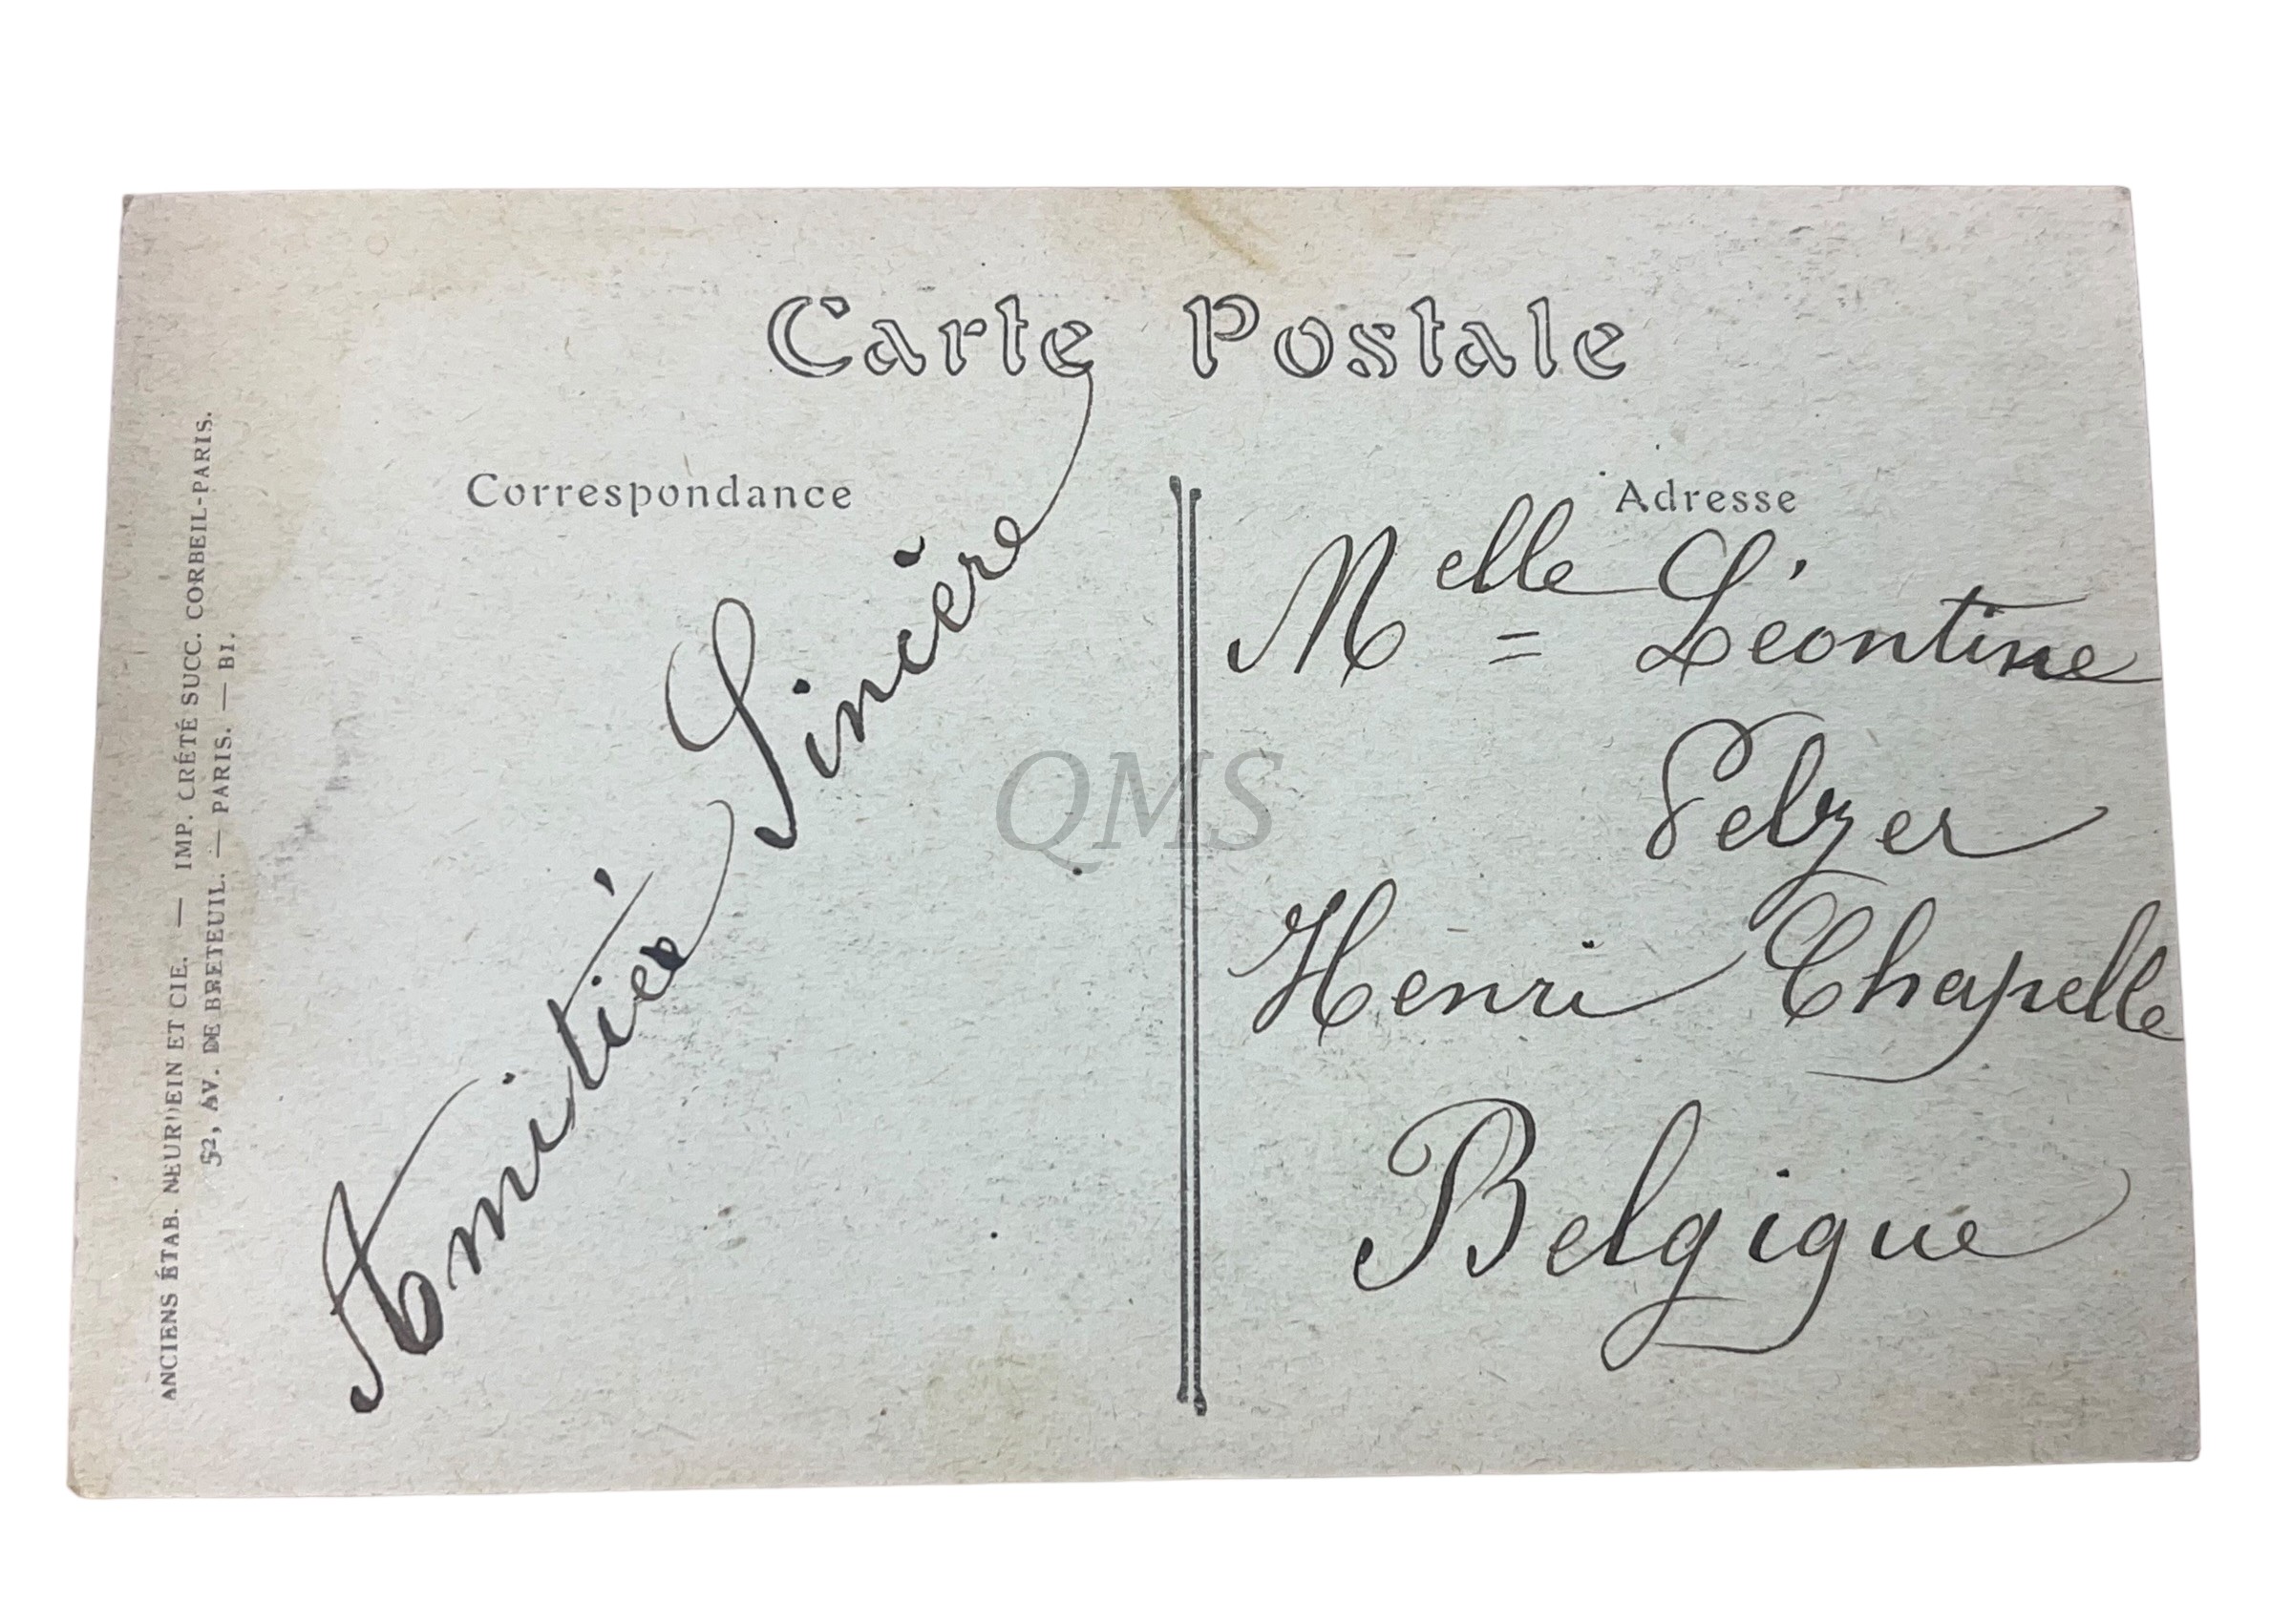 Carte Postale
Correspondance
Adresse
Amitiée Sincère
Melle = Léontine
Pelzer
Henri Chapelle
Belgique
ANCIENS ÉTAB. NEURDEIN ET CIE. — IMP. CRÉTÉ SUCC. CORBEIL-PARIS.
52, AV. DE BRETEUIL. — PARIS. — B1.
QMS